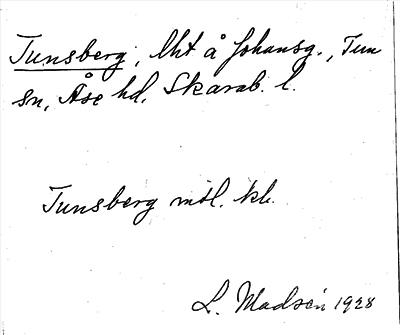 Tunsberg, lht å Johansg., Tun
sn, Åse hd, Skarab. l.
Tunsberg mtl. kk.
L. Madsén 1928